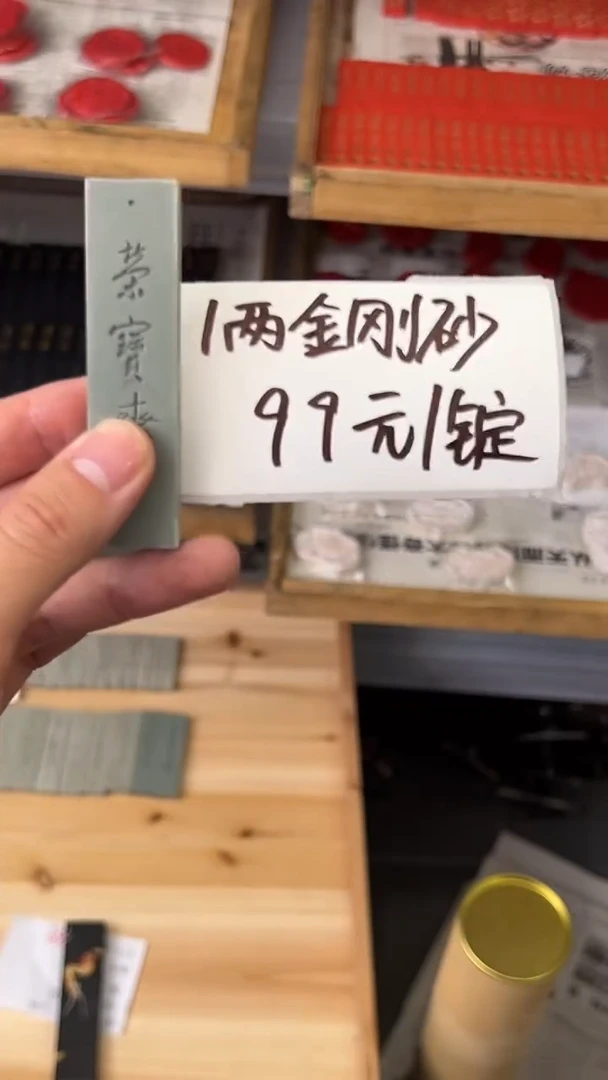 榮寶
1两金刚砂
99元/锭